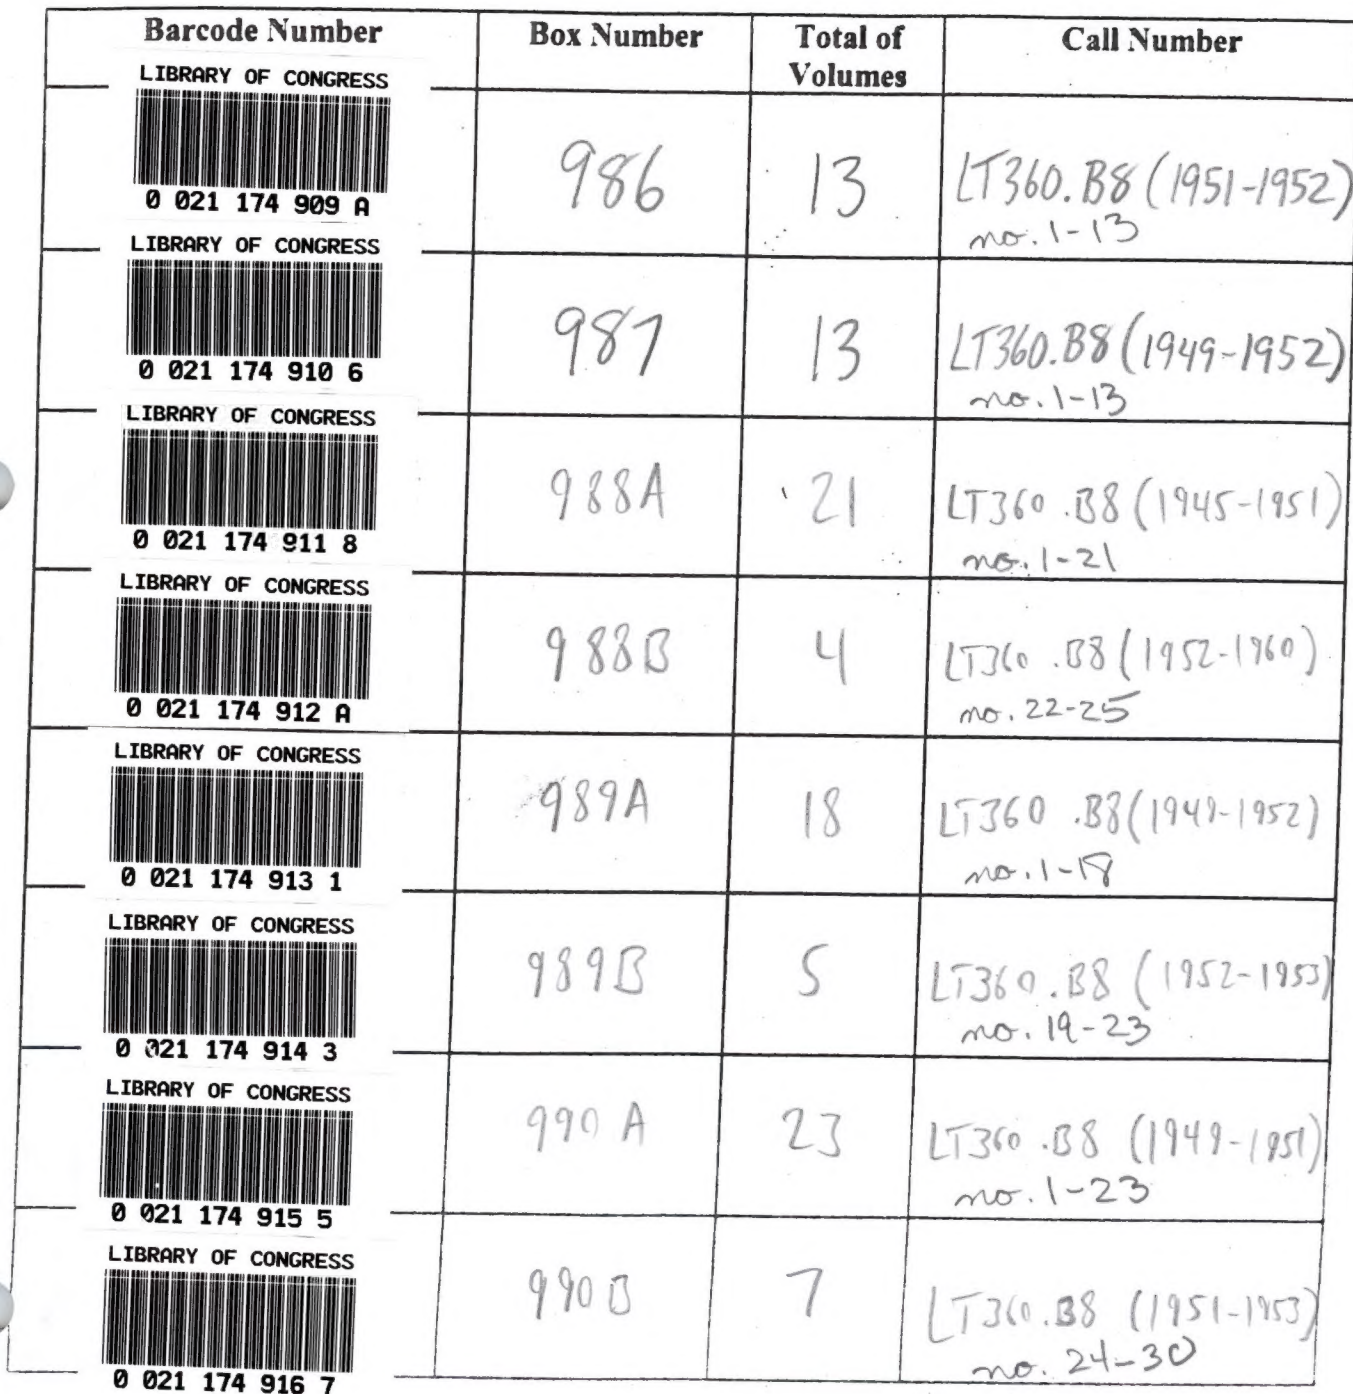 Barcode Number Box Number Total of Volumes Call Number
LIBRARY OF CONGRESS
0 021 174 909 A
986 13 LT360.B8 (1951-1952)
no. 1-13
LIBRARY OF CONGRESS
0 021 174 910 6
987 13 LT360.B8 (1949-1952)
no. 1-13
LIBRARY OF CONGRESS
0 021 174 911 8
988A 21 LT360.B8 (1945-1951)
no. 1-21
LIBRARY OF CONGRESS
0 021 174 912 A
988B 4 LT360.B8 (1952-1960)
no. 22-25
LIBRARY OF CONGRESS
0 021 174 913 1
989A 18 LT360.B8 (1949-1952)
no. 1-18
LIBRARY OF CONGRESS
0 021 174 914 3
989B 5 LT360.B8 (1952-1953)
no. 19-23
LIBRARY OF CONGRESS
0 021 174 915 5
990A 23 LT360.B8 (1949-1951)
no. 1-23
LIBRARY OF CONGRESS
0 021 174 916 7
990B 7 LT360.B8 (1951-1953)
no. 24-30